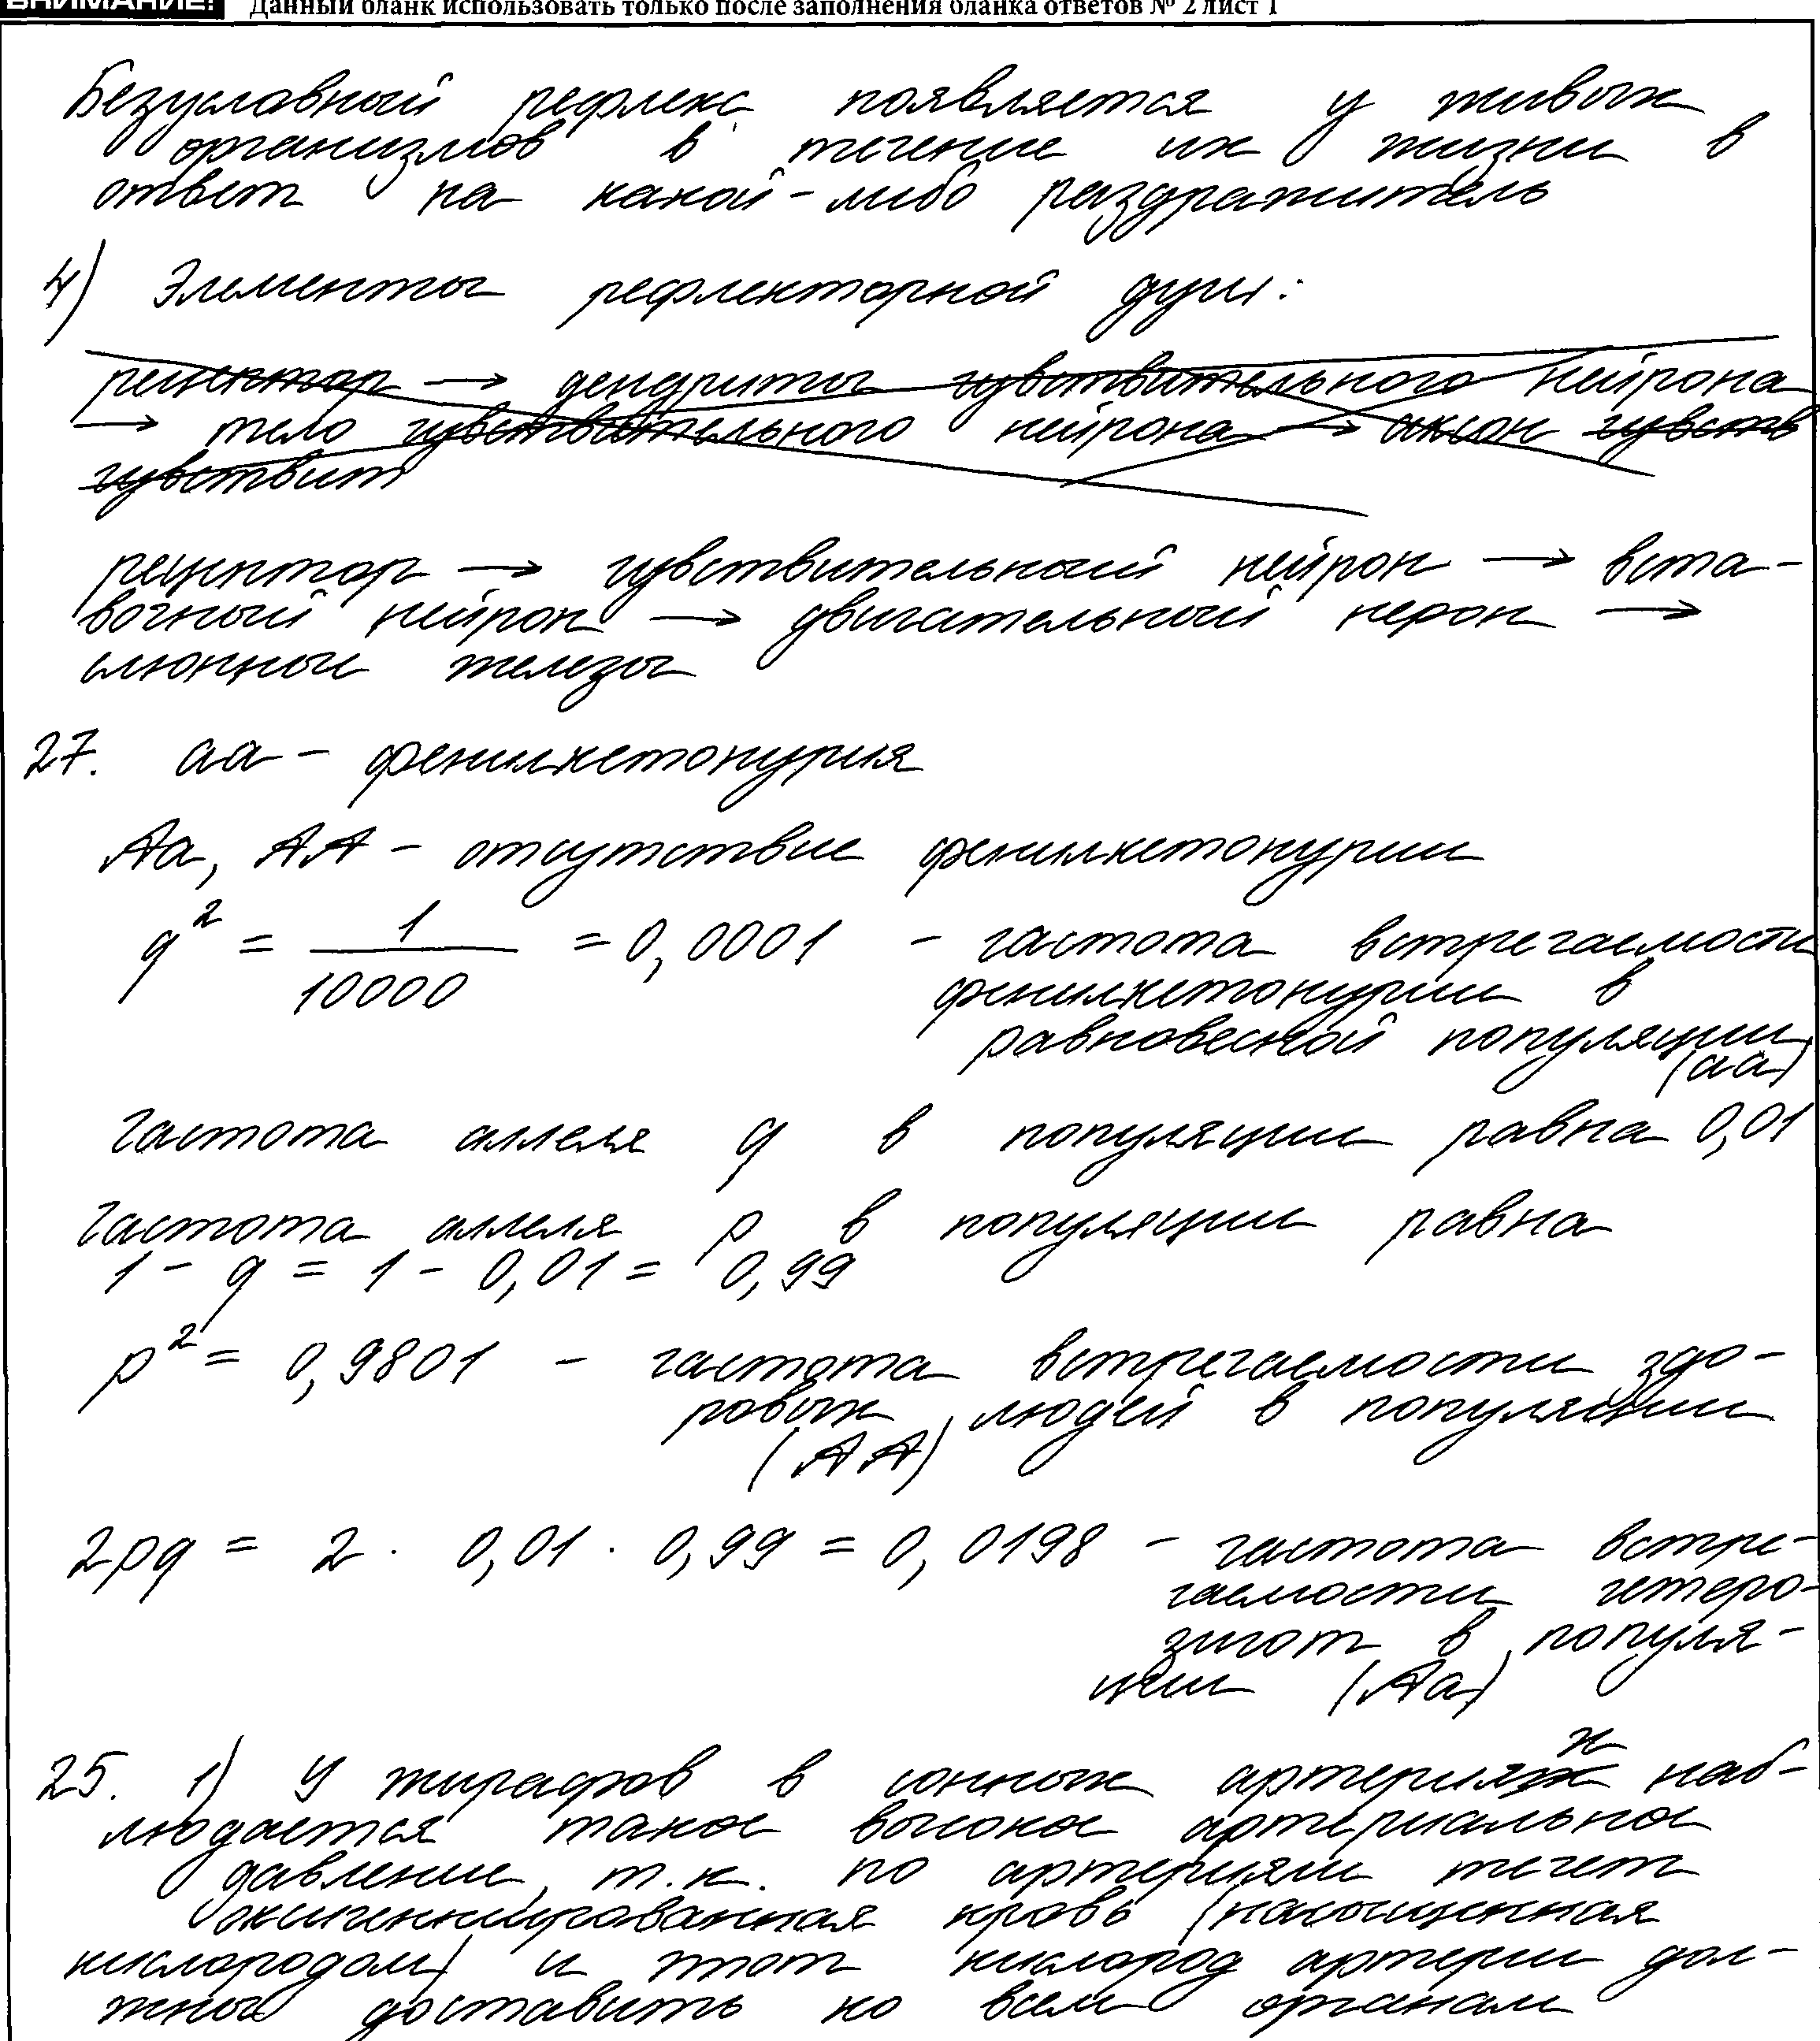 ВНИМАНИЕ! Данный бланк использовать только после заполнения бланка ответов № 2 лист 1
Безусловный рефлекс появляется у живых
организмов в течение их жизни в
ответ на какой-либо раздражитель
4) Элементы рефлекторной дуги:
рецептор → дендриты чувствительного нейрона
→ тело чувствительного нейрона → аксон чувств
чувствит
рецептор → чувствительный нейрон → вста-
вочный нейрон → двигательный нерон →
слюнные железы
27. аа - фенилкетонурия
Аа, АА - отсутствие фенилкетонурии
q² = 1/10000 = 0,0001 - частота встречаемости
фенилкетонурии в
равновесной популяции
(аа)
Частота аллеля q в популяции равна 0,01
Частота аллеля p в популяции равна
1 - q = 1 - 0,01 = 0,99
p² = 0,9801 - частота встречаемости здо-
ровых людей в популяции
(АА)
2pq = 2 · 0,01 · 0,99 = 0,0198 - частота встре-
чаемости гетеро-
зигот в популя-
ции (Аа)
25. 1) У жирафов в сонных артериях наб-
людается такое высокое артериальное
давление, т.к. по артериям течет
оксигенированная кровь (насыщенная
кислородом) и этот кислород артерии дол-
жны доставить ко всем органам